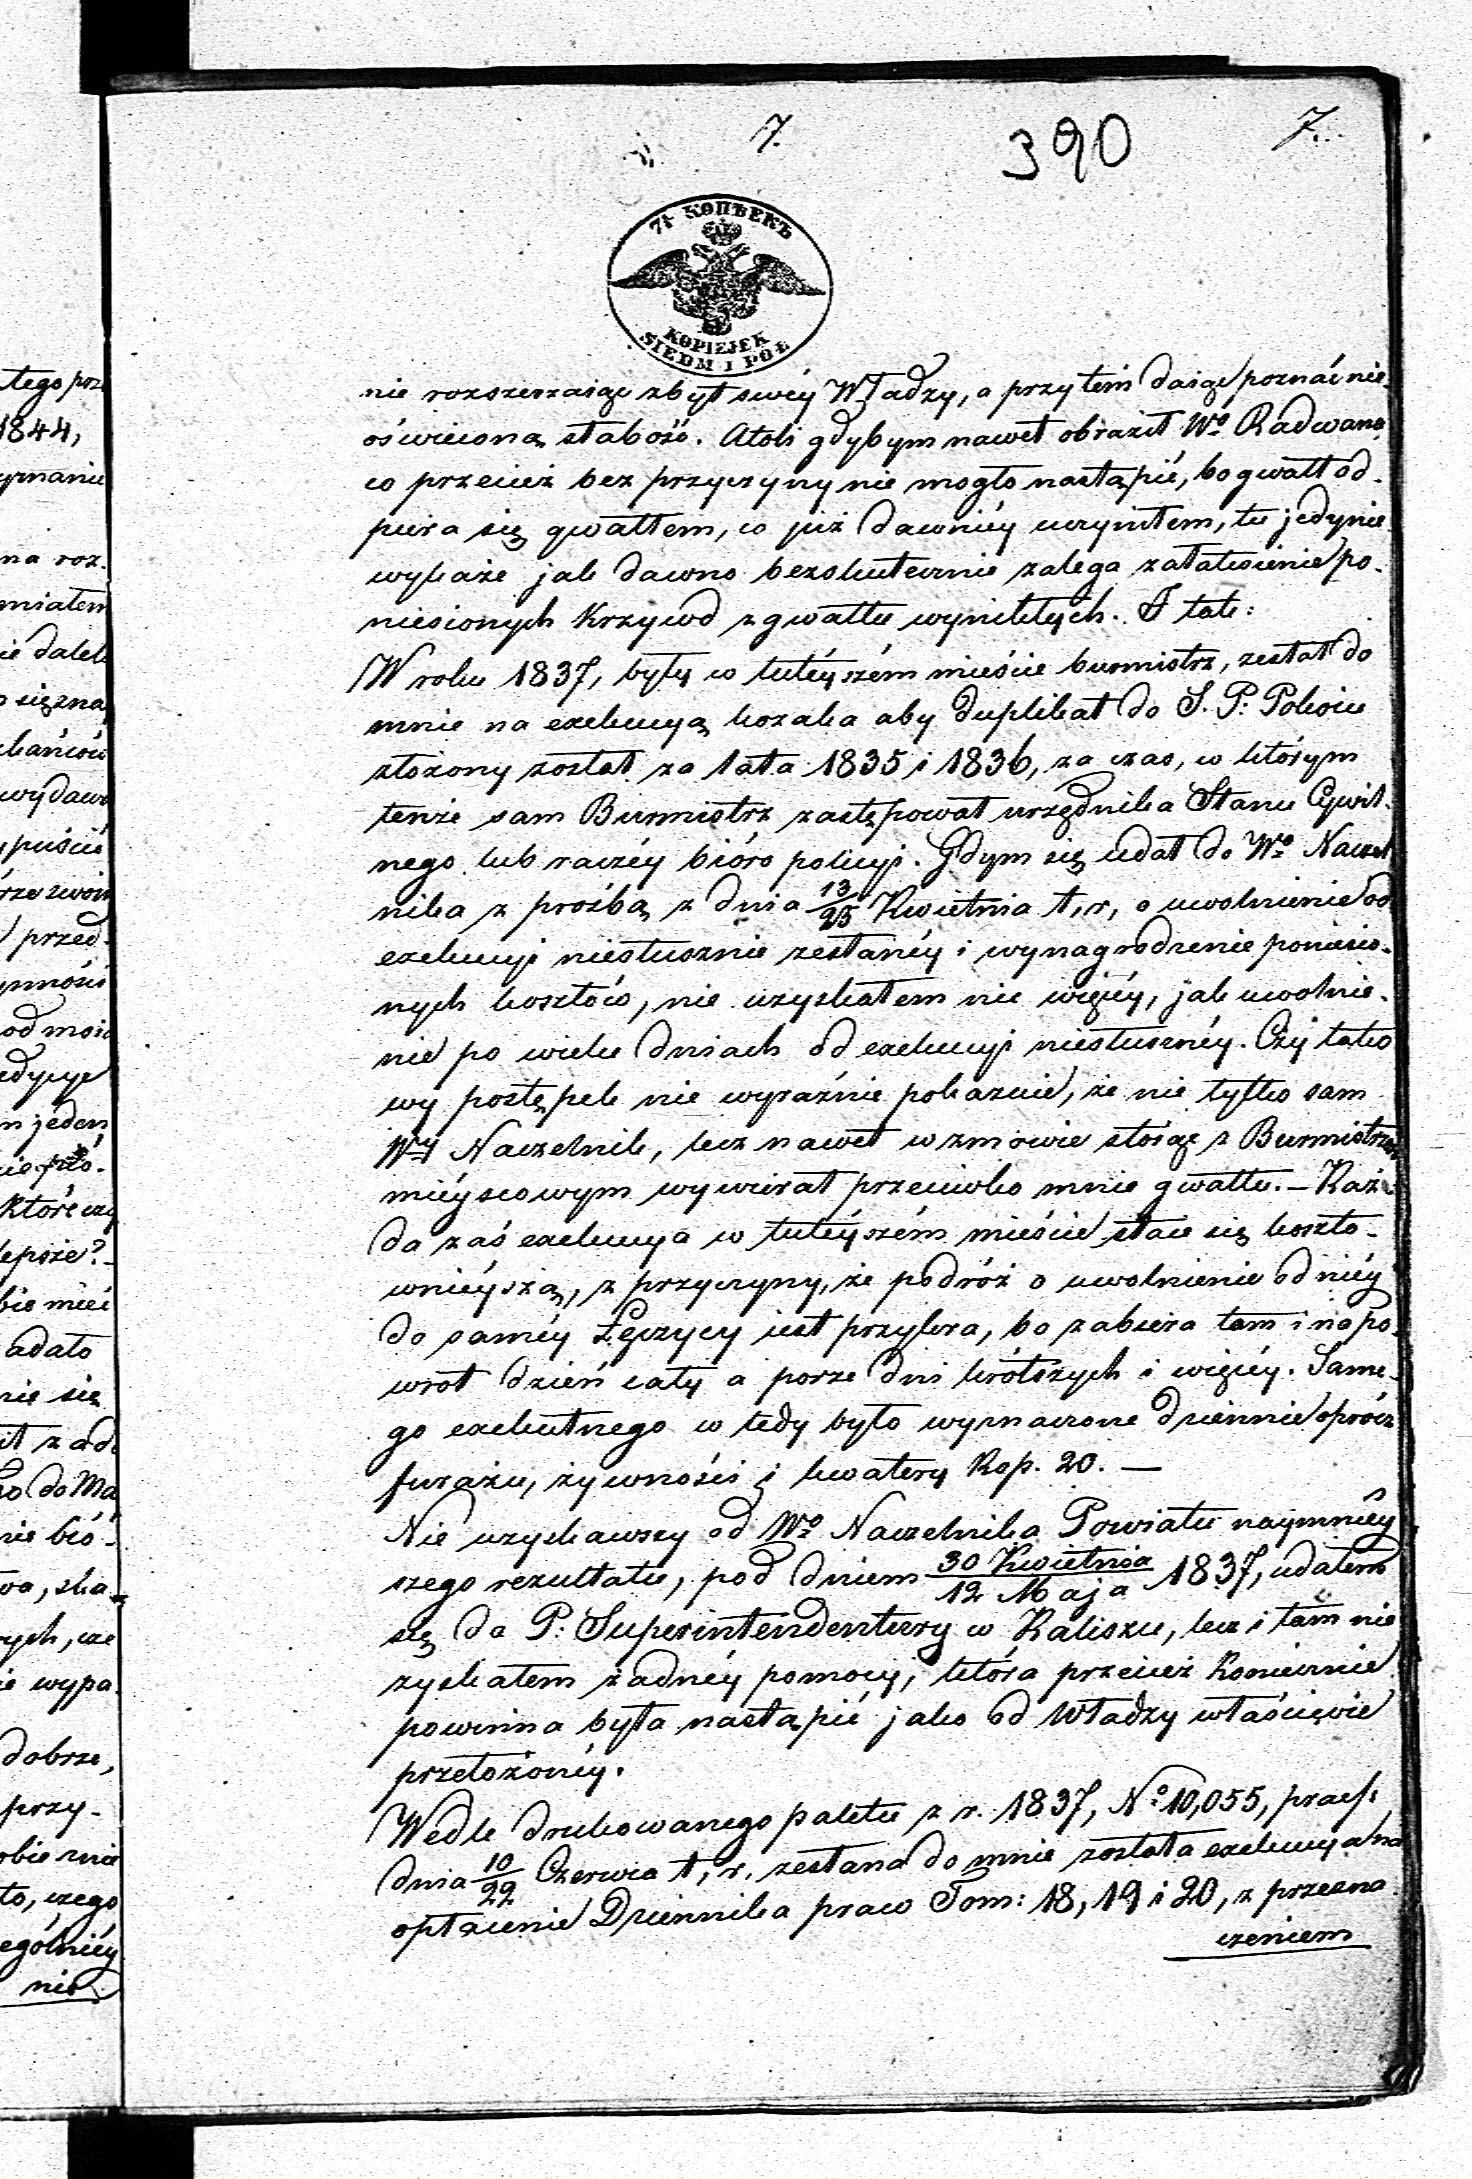 7.
390
7.
7½ КОПѢЕКЪ
KOPIEJEK
SIEDM I PÓŁ
nie rozszerzaiąc zbyt swéy Władzy, a przytém daiąc poznać nie-
oświeconą słabość. Atoli gdybym nawet obraził Wo Radwana
co przecież bez przyczyny nie mogło nastąpić, bo gwałt od-
piera się gwałtem, co już dawniéy uczyniłem, tu jedynie
wykaże jak dawno bezskutecznie zalega załatwienie po-
niesionych Krzywd z gwałtu wynikłych. I tak:
W roku 1837, były w tutéyszém mieście burmistrz, zesłał do
mnie na exekucyą kozaka aby duplikat do S. P: Pokoiu
złożony został za lata 1835 i 1836, za czas, w którym
tenże sam Burmistrz zastępował urzędnika Stanu Cywil-
nego lub raczéy bióro policyi. Gdym się udał do Wo Naczel
nika z prośbą z dnia 13/25 Kwietnia t, r, o uwolnienie od
exekucyi niesłusznie zesłanéy i wynagrodzenie poniesio-
nych kosztów, nie uzyskałem nic więcéy, jak uwolnie-
nie po wielu dniach od exekucyi niesłusznéy. Czÿ tako
wy postępek nie wyraźnie pokazuie, że nie tylko sam
Wy Naczelnik, lecz nawet w zmowie stoiąc z Burmistrzem
miéyscowym wywierał przeciwko mnie gwałtu. – Każ-
da zaś exekucya w tutéyszém mieście staie się koszto-
wniéyszą, z przyczyny, że podróż o uwolnienie od niéy
do saméy Łęczycy iest przykra, bo zabiera tam i napo-
wrot dzień cały a porze dni krótszych i więcéy. Same-
go exekutnego w tedy było wyznaczone dziennie oprócz
furażu, żywności i kwatery Kop. 20. —
Nie uzyskawszy od Wo Naczelnika Powiatu naymniéy
szego rezultatu, pod dniem 30 Kwietnia/12 Maja 1837, udałem
się do P: Superintendentury w Kaliszu, lecz i tam nie
zyskałem żadnéy pomocy, która przecież Koniecznie
powinna była nastąpić jako od Władzy właściwie
przełożonéy.
Wedle drukowanego paletu z r. 1837, No 10,055, praes:
dnia 10/22 Czerwca t, r. zesłana do mnie została exekucya na
opłacenie Dziennika praw Tom: 18, 19 i 20, z przezna
czeniem
tego poz
1844,
ymanie
na roz-
miałem
ie dalek
o się zna
kańców
wydawa
puścić
rze zwoie
przed-
ynności
od moie
edycye
m jeden
Które czy
lepsze? -
bie mieć
adało
nie się
it z ad
ko do Ma
nie bió-
wa, ska
rych, cze
ie wypa-
dobrze,
przy-
obie nie
to, czego
ególniéy
nie